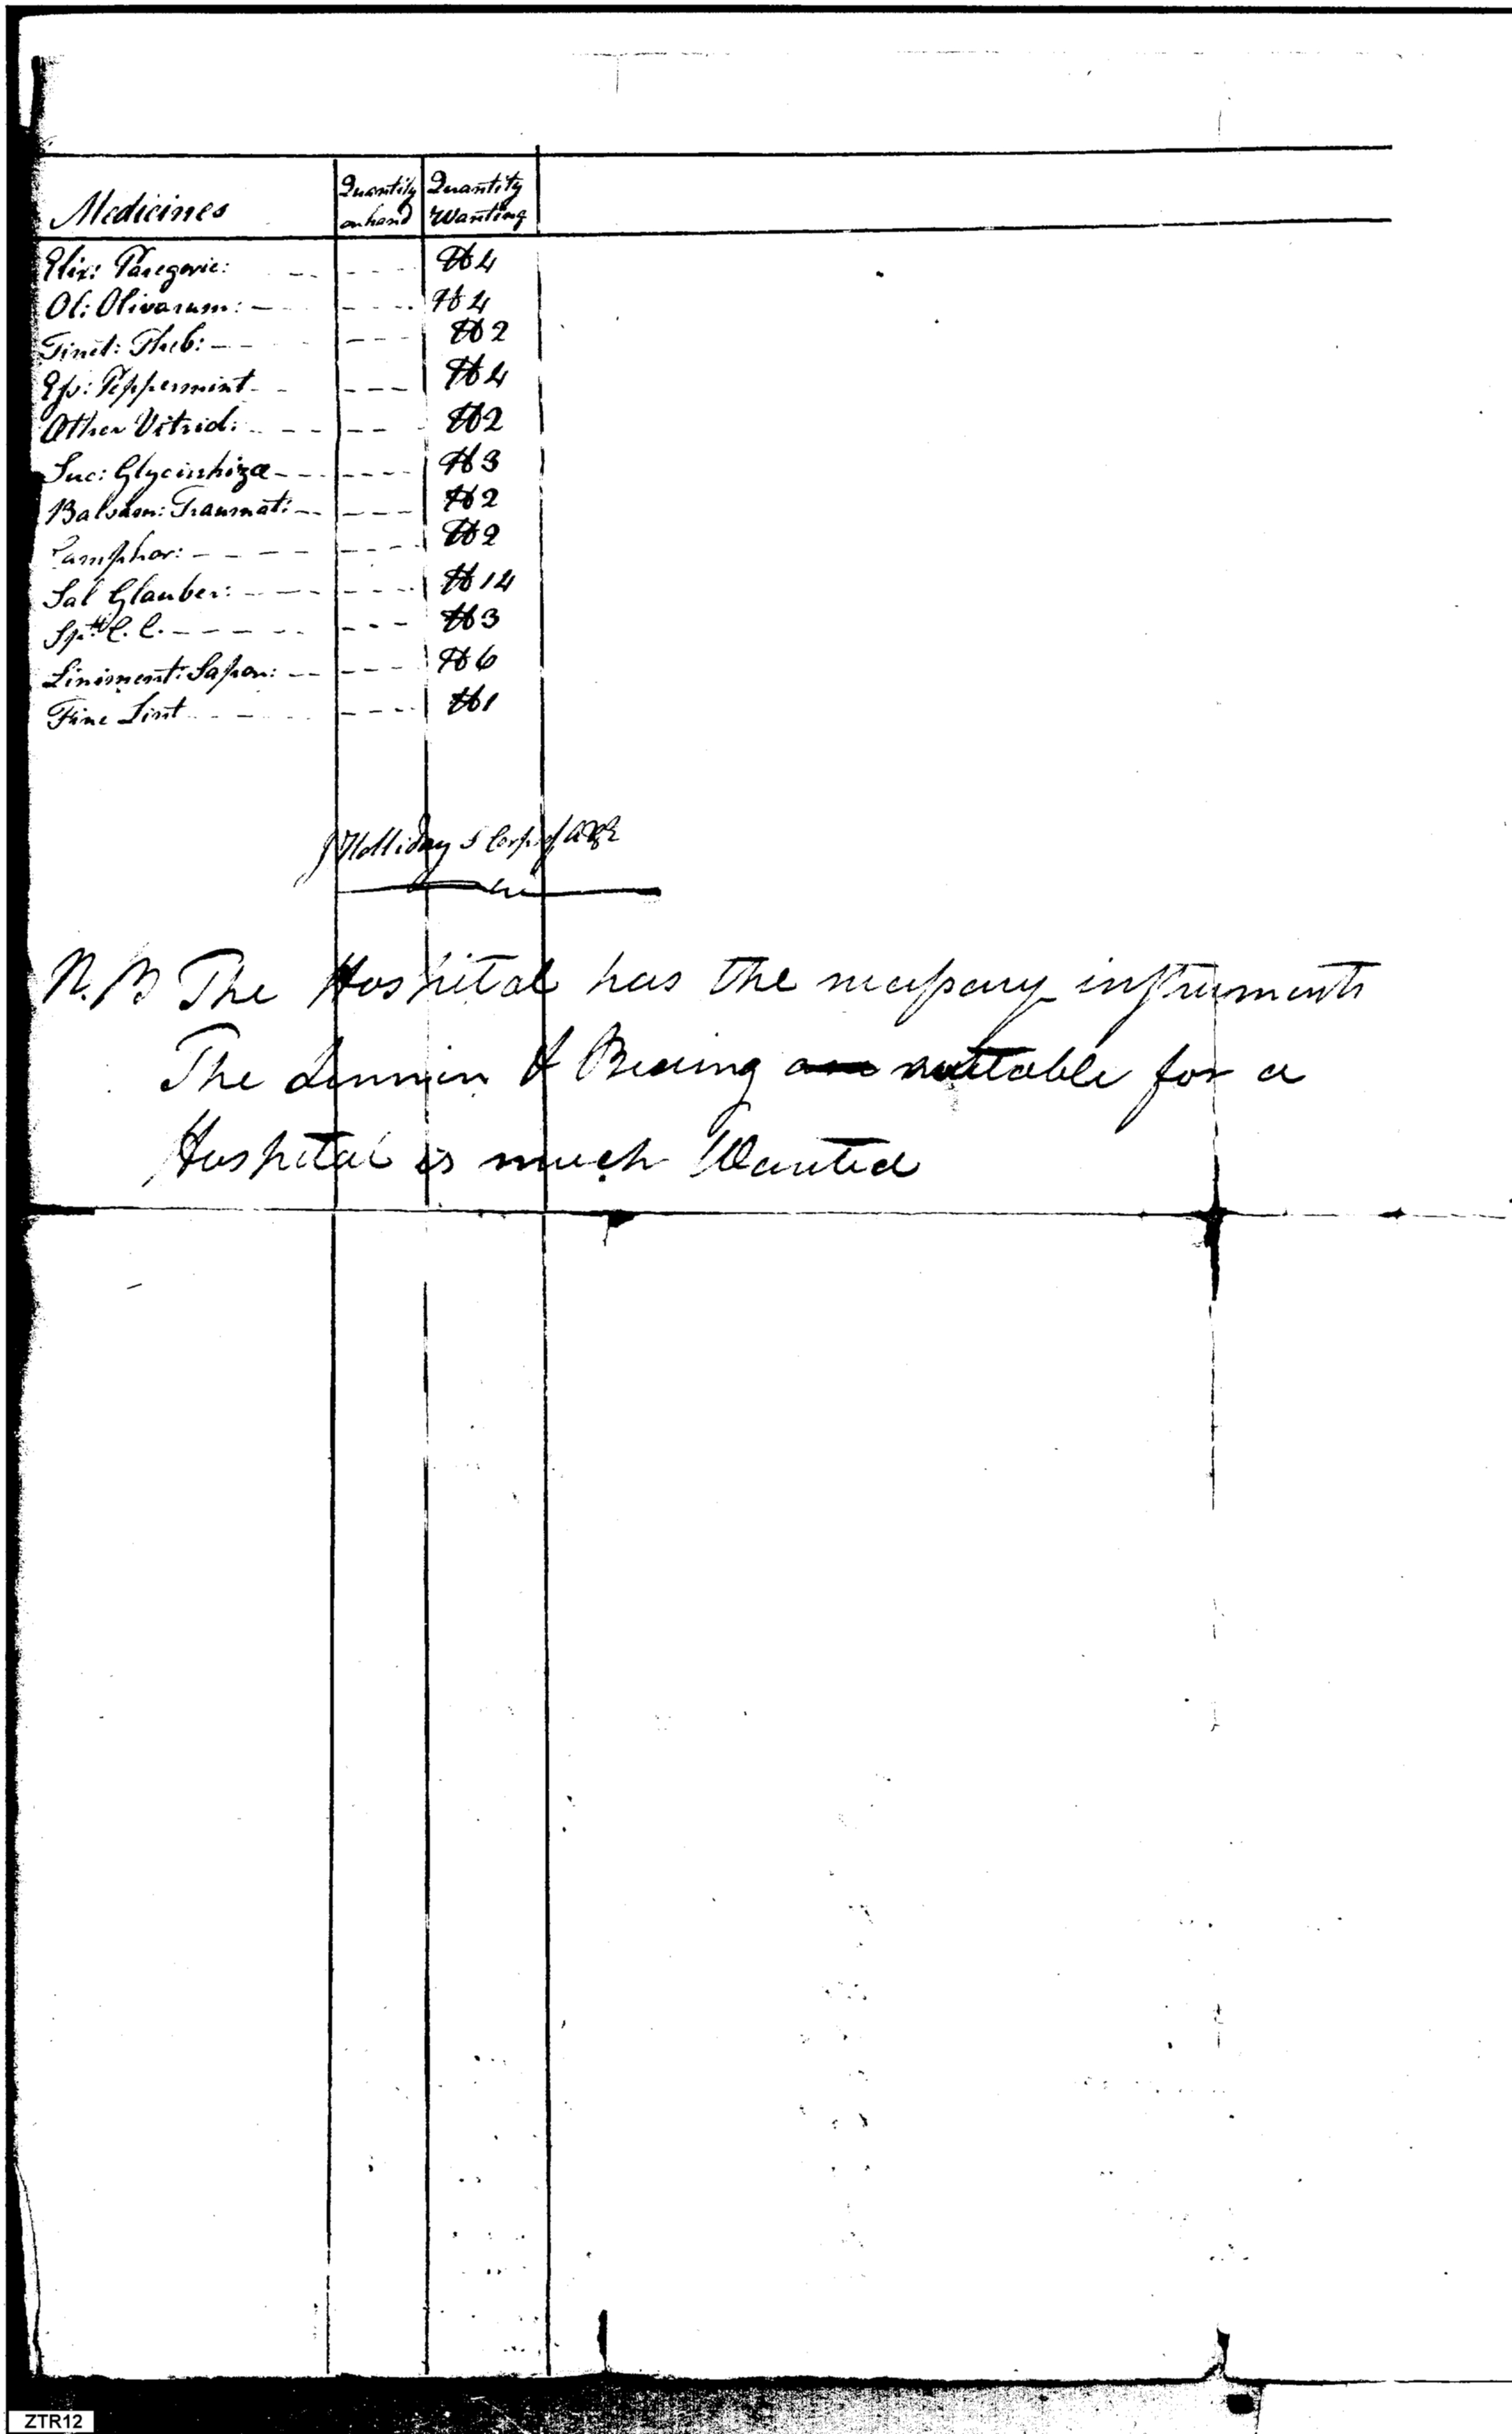 Medicines Quantity on hand Quantity Wanting
Elix: Paregoric: ℔ 4
Ol: Olivarum: ℔ 4
Tinct: Theb: ℔ 2
Ess: Peppermint ℔ 4
Æther Vitriol: ℔ 2
Suc: Glycirrhizæ ℔ 3
Balsam: Traumat: ℔ 2
Camphor: ℔ 2
Sal Glauber: ℔ 14
Spt. C. C. ℔ 3
Liniment: Sapon: ℔ 6
Fine Lint ℔ 1
J Holliday S Corps of A & E
N.B The Hospital has the necessary instruments
The Linnin & Beding suitable for a
Hospital is much Wanted
ZTR12